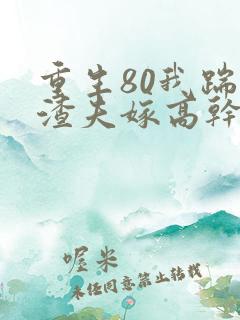 重生80我踹
渣夫嫁高幹
喔米
未任同意禁止转载